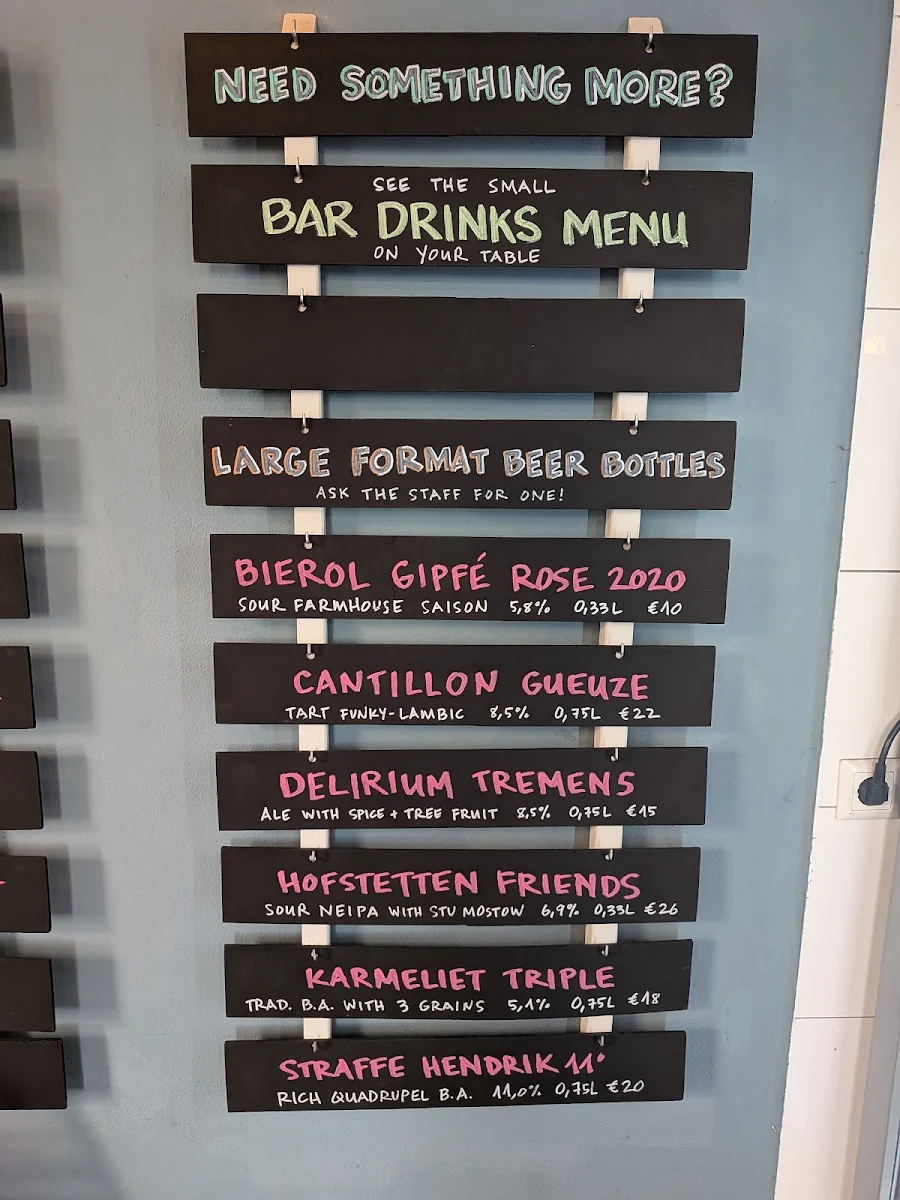 NEED SOMETHING MORE?
SEE THE SMALL
BAR DRINKS MENU
ON YOUR TABLE
LARGE FORMAT BEER BOTTLES
ASK THE STAFF FOR ONE!
BIEROL GIPFÉ ROSE 2020
SOUR FARMHOUSE SAISON 5,8% 0,33L €10
CANTILLON GUEUZE
TART FUNKY-LAMBIC 8,5% 0,75L €22
DELIRIUM TREMENS
ALE WITH SPICE + TREE FRUIT 8,5% 0,75L €15
HOFSTETTEN FRIENDS
SOUR NEIPA WITH STU MOSTOW 6,9% 0,33L €26
KARMELIET TRIPLE
TRAD. B.A. WITH 3 GRAINS 5,1% 0,75L €18
STRAFFE HENDRIK 11°
RICH QUADRUPEL B.A. 11,0% 0,75L €20